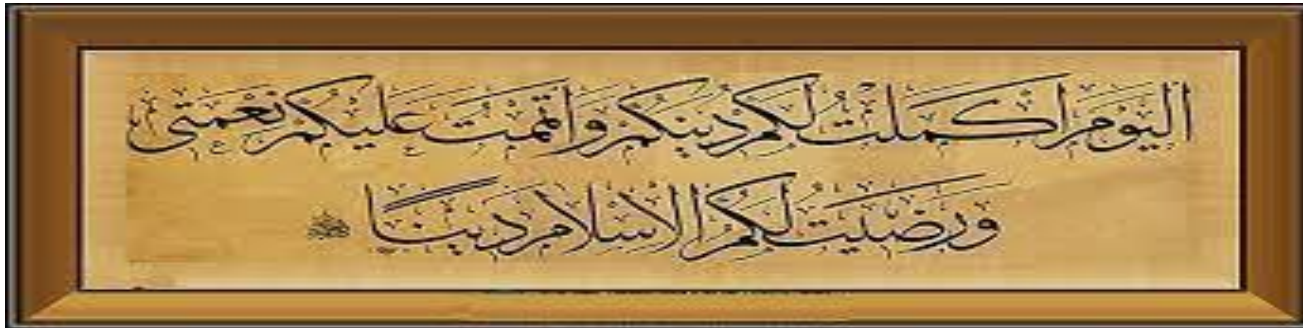 اليَوْمَ اَكْمَلْتُ لَكُمْ دِينَكُمْ وَاَتْمَمْتُ عَلَيْكُمْ نِعْمَتِى
وَرَضِيتُ لَكُمُ الْاِسْلَامَ دِيْنًا